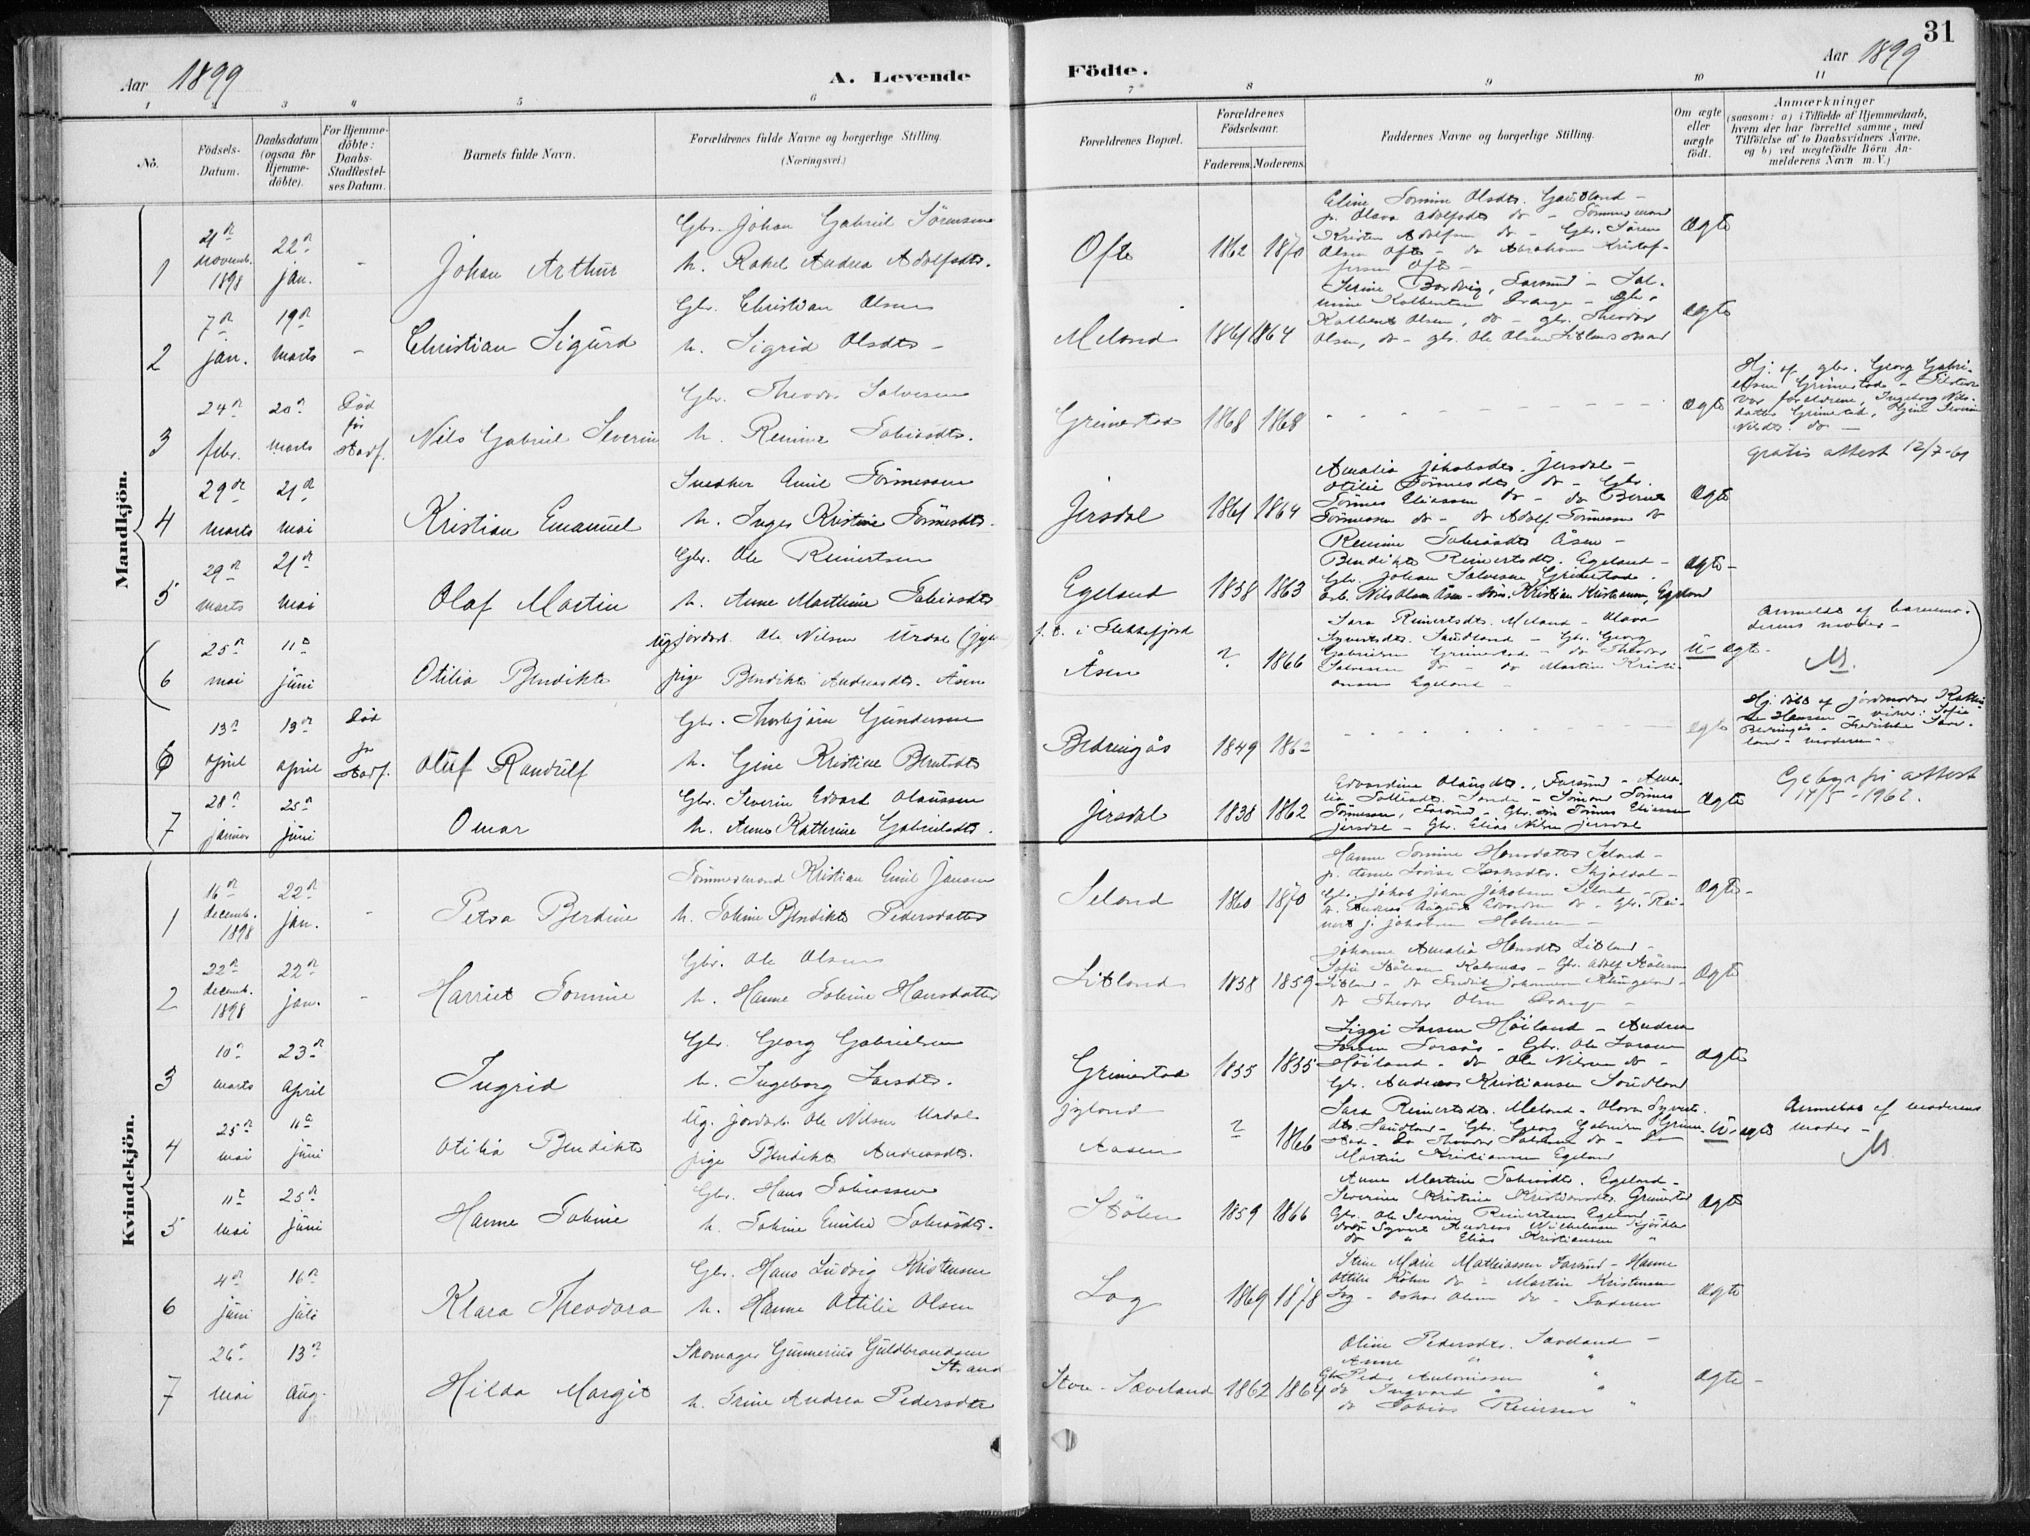 31
Aar 1899
A. Levende
Födte.
Aar 1899
1 2 3 4 5 6 7 8 9 10 11
No.
Födsels-
Datum.
Daabsdatum
(ogsaa for
Hjemme-
döbte).
For Hjemme-
döbte:
Daabs-
Stadfæstel-
ses Datum.
Barnets fulde Navn.
Forældrenes fulde Navne og borgerlige Stilling.
(Næringsvei.)
Forældrenes Bopæl.
Forældrenes
Födselsaar.
Faderens. Moderens.
Faddernes Navne og borgerlige Stilling.
Om ægte
eller
uægte
födt.
Anmærkninger
(saasom: a) i Tilfælde af Hjemmedaab,
hvem der har forrettet samme, med
Tilföielse af to Daabsvidners Navne,
og b) ved uægtefödte Börn An-
melderens Navn m. V.)
Mandkjön.
1
21de
novemb.
1898
22de
jan.
-
Johan Arthur
Gbr. Johan Gabriel Sörensen
h. Rakel Andrea Adolfsdtr.
Ofte
1862 1870
Eline Tomine Olsdtr. Gaudland -
p. Olava Adolfsdtr do - Tömmermand
Kristen Adolfsen do - Gbr. Sören
Olsen Ofte - do Abraham Kristof-
fersen Ofte -
Ægte
2
7de
jan.
19de
marts
-
Christian Sigurd
Gbr. Christian Olsen
h. Sigrid Olsdtr -
Meland
1861 1864
Serine Bordvig, Farsund - Tal-
Kalbentsen Drange - Gbr.
Kalbent Olsen, do - gbr. Theodor
Olsen, do - gbr. Ole Olsen Litland
Ægte
3
24de
febr.
20de
marts
Död
för
stadf.
Nils Gabriel Severin
Gbr. Theodor Salvesen
h. Remine Tobiasdtr.
Grimestad
1868 1868
Ægte
Hj. af gbr. Georg Gabri-
elsen Grimestad - Tilstede
var forældrene, Ingeborg Nils-
datter Grimestad, Gine Severine
Nilsdtr. do -
gratis attest 12/7-61
4
29de
marts
21de
mai
Kristian Emanuel
Snedker Emil Tönnessen
h. Inger Kristine Tönnesdtr.
Jersdal
1861 1864
Amalia Jakobsdtr. Jersdal -
Otilie Tönnesdtr do - Gbr.
Tönnes Eliassen do - do Bernt
Tönnessen do - do Adolf Tönnessen do
Ægte
5
29de
marts
21de
mai
Olaf Martin
Gbr. Ole Reinertsen
h. Anne Marthine Tobiasdtr
Egeland
1858 1863
Remine Tobiasdtr Åsen -
Bendikte Reinertsdtr. Egeland -
Gbr. Johan Salvesen, Grimestad.
Arb. Nils Olsen Åsen - Kristian Kristiansen, Egeland
Ægte -
6
25de
mai
11te
juni
Otilia Bendikte
Ug. jordarb. Ole Nilsen Urdal
pige Bendikte Andreasdtr. Åsen
f. t. i Flekkefjord
Åsen
? 1866
Sara Reinertsdtr. Meland - Olava
Syvertsdtr. Saudland - Gbr. Georg
Gabrielsen Grimestad - do Theodor
Salvesen do - do Martin Kristi-
ansen Egeland -
U- ægte -
Anmeldt af barnemo-
derens moder -
M.
6
13de
april
13de
april
Död
för
stadf.
Oluf Randulf
Gbr. Thorbjörn Gundersen
h. Gine Kristine Berntsdtr
Bedringås
1849 1862
ægte
Hj. döbt af jordmoder Kathri-
ne Hansen - vidner: Sofie
Bedringås - Fredrikke Save-
land - moderen -
Gebyrfri attest
14/5 - 1962.
7
28de
januar
25de
juni
Omar
Gbr. Severin Edvart Olaussen
h. Anne Kathrine Gabrielsdtr.
Jersdal
1838 1862
Edvardine Olausdtr., Farsund - Ama-
lia Salvesdtr. Sande - Tönnes
Tönnessen, Farsund - Gbr. Tönnes Eliassen
Jersdal - Gbr. Elias Nilsen Jersdal
Ægte
Kvindekjön.
1
16de
decemb.
1898
22de
jan.
-
Petra Berdine
Tömmermand Kristian Emil Jansen
h. Tobine Bendikte Pedersdatter
Seland
1860 1870
Hanne Tomine Hansdatter Seland -
p. Anne Lovise Isaksdtr. Skjoldal -
Gbr. Jakob Johan Jakobsen Seland -
do. Andreas August Edvardsen do - Gbr. Rei-
nert J. Jakobsen Holmen -
Ægte -
2
22de
decemb.
1898
22de
jan.
-
Harriet Tomine
Gbr. Ole Olsen
h. Hanne Tobine Hansdatter
Litland
1858 1859
Johanne Amalia Hansdtr Litland -
Sofie Stölen Kalvenes - Gbr. Adolf Stölen
Litland - do Fredrik Johannesen Klungeland -
do Theodor Olsen Drange -
Ægte
3
10de
marts
23de
april
Ingrid
Gbr. Georg Gabrielsen
h. Ingeborg Larsdtr.
Grimestad
1855 1855
Liggi Larsen Höiland - Andrea
Larsen Torsås - Gbr. Ole Larsen
Höiland - do Ole Nilsen do -
Gbr. Andreas Kristiansen Saudland
Ægte
4
25de
mai
11te
juni
Otilia Bendikte
Ug. jordarb. Ole Nilsen Urdal
pige Bendikte Andreasdtr.
Jyland
Aasen
? 1866
Sara Reinertsdtr. Meland - Olava Syverts-
dtr. Saudland - Gbr. Georg Gabrielsen Grime-
stad - do Theodor Salvesen do - do
Martin Kristiansen Egeland
U- ægte
Anmeldt af moderens
moder -
M.
5
11te
mai
25de
juni
Hanne Tobine
Gbr. Hans Tobiassen
h. Tobine Emilie Tobiasdtr.
Stölen
1859 1866
Anne Martine Tobiasdtr. Egeland -
Severine Kristine Kristiansdtr. Grimestad
Gbr. Ole Severin Reinertsen Egeland -
Syvert Andreas Wilhelmsen
do " Elias Kristiansen "
Ægte
6
4de
juni
16de
juli
Klara Theodora
Gbr. Hans Ludvig Kristensen
h. Hanne Ottilie Olsen
Log
1869 1878
Stine Marie Mathiassen Farsund - Hanne
Ottilie Köhn do - Martin Kristensen
Log - Oskar Olsen do - Faderen
Ægte
7
26de
mai
13de
aug.
Hilda Margit
Skomager Gunnerius Guldbrandsen
Strand
h. Trine Andrea Pedersdtr
Store-Sæveland
1862 1864
Oline Pedersdtr. Saveland -
Anne " "
Gbr. Peder Antonissen "
do Ingvard " "
do Tobias Reiersen "
Ægte -